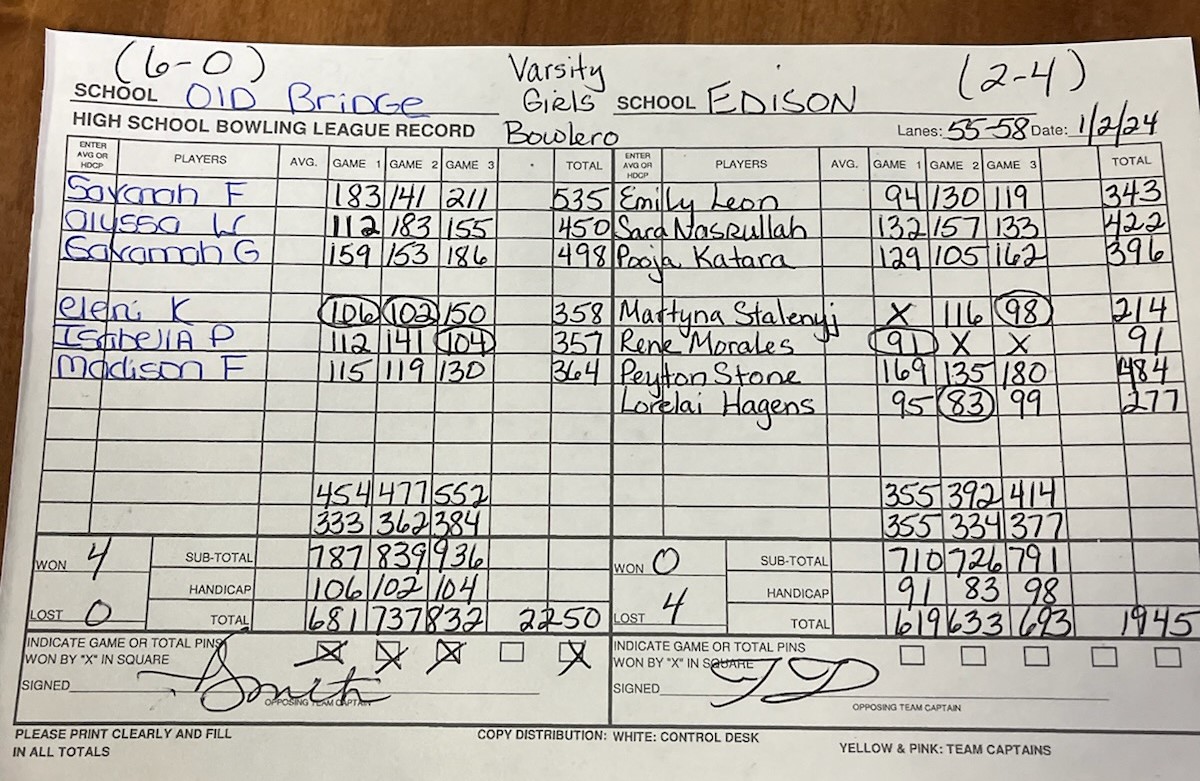 (6-0) Varsity (2-4)
SCHOOL OlD BriDGe Girls SCHOOL EDISON
HIGH SCHOOL BOWLING LEAGUE RECORD Bowlero Lanes: 55-58 Date: 1/2/24
ENTER AVG OR HDCP PLAYERS AVG. GAME 1 GAME 2 GAME 3 TOTAL ENTER AVG OR HDCP PLAYERS AVG. GAME 1 GAME 2 GAME 3 TOTAL
Savanah F 183 141 211 535 Emily Leon 94 130 119 343
alyssa W 112 183 155 450 Sara Nasrullah 132 157 133 422
Savannah G 159 153 186 498 Pooja Katara 129 105 162 396
eleni K 106 102 150 358 Martyna Stalenyj X 116 98 214
IsabellA P 112 141 104 357 Rene Morales 91 X X 91
Madison F 115 119 130 364 Peyton Stone 169 135 180 484
Lorelai Hagens 95 83 99 277
454 477 552 355 392 414
333 362 384 355 334 377
WON 4 SUB-TOTAL 787 839 936 WON 0 SUB-TOTAL 710 726 791
HANDICAP 106 102 104 HANDICAP 91 83 98
LOST 0 TOTAL 681 737 832 2250 LOST 4 TOTAL 619 633 693 1945
INDICATE GAME OR TOTAL PINS INDICATE GAME OR TOTAL PINS
WON BY "X" IN SQUARE X X X X WON BY "X" IN SQUARE
SIGNED SIGNED
OPPOSING TEAM CAPTAIN OPPOSING TEAM CAPTAIN
PLEASE PRINT CLEARLY AND FILL COPY DISTRIBUTION: WHITE: CONTROL DESK YELLOW & PINK: TEAM CAPTAINS
IN ALL TOTALS